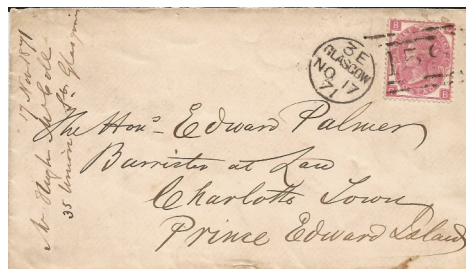 17 Nov 1871
Mr Hugh
35 Union St. Glasgow
3E
GLASGOW
NO 17
71
B
B
The Hon^s Edward Palmer
Barrister at Law
Charlotte Town
Prince Edward Island